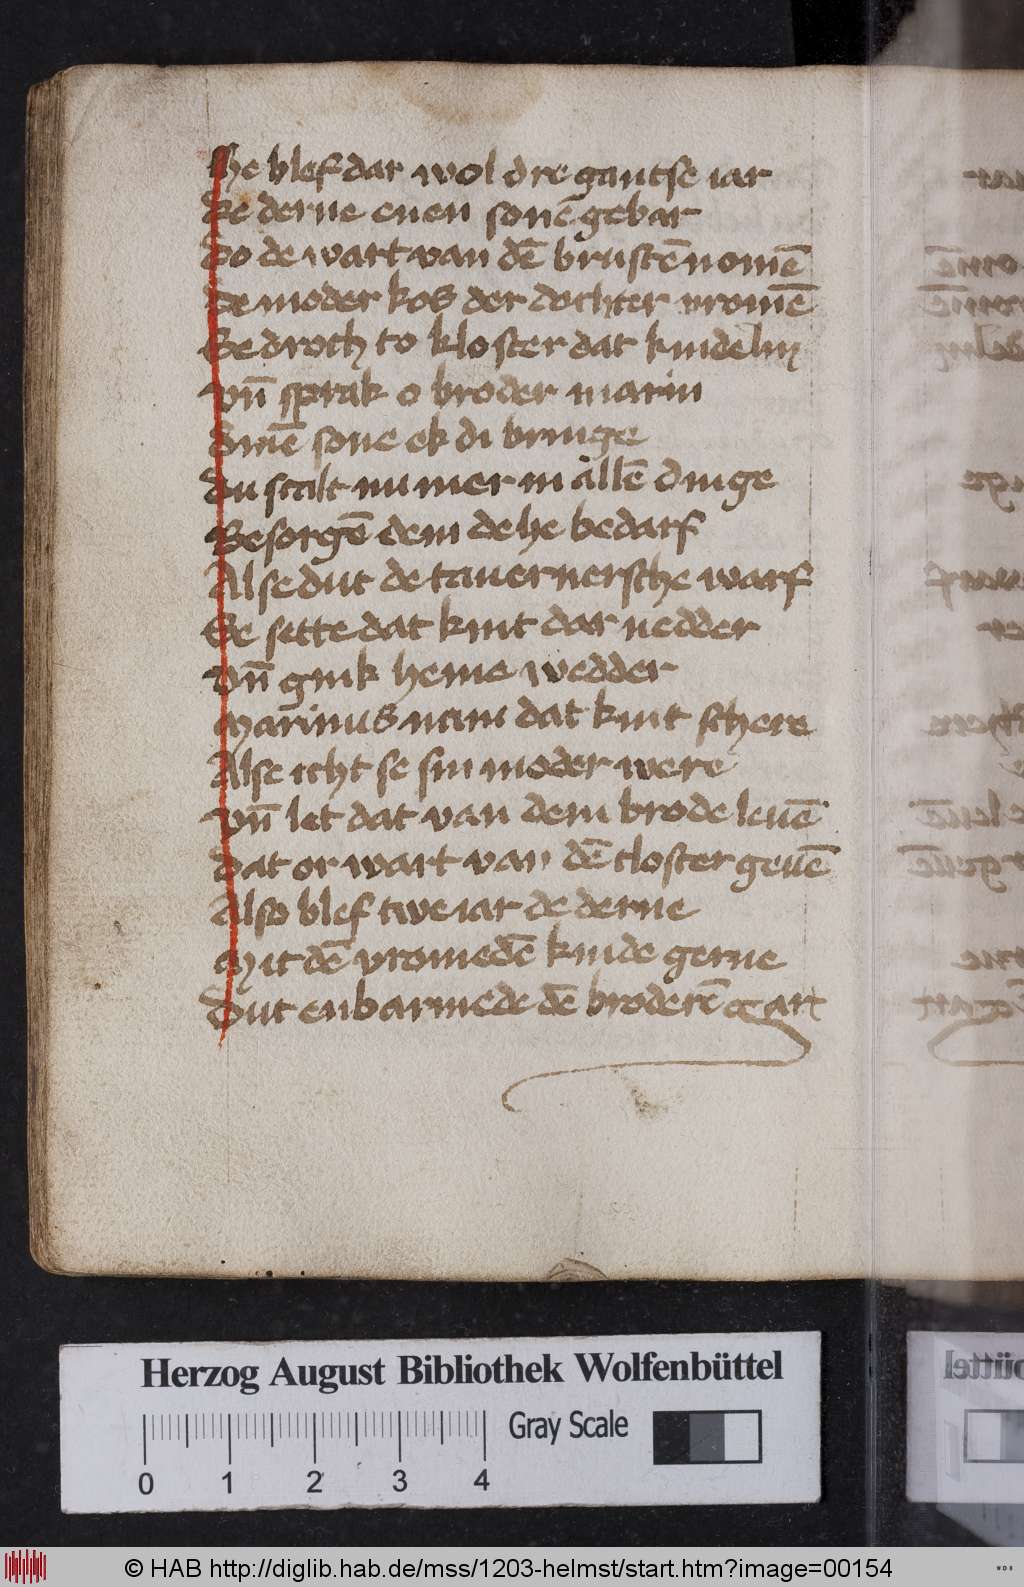 He blef dar wol dre gantse iar
de derne enen sonē gebar
Do de wart van dē brustē nomē
De moder kos der dochter vromē
Se droch to kloster dat kindelin
vn̄ sprak o broder marin
Dinē sone ek di bringe
du scalt nummer in allē dinge
Besorgē dem de he bedarf
Alse dut de tauernersche warf
Se sette dat kint dar nedder
vn̄ gink heme wedder
Marinus nam dat kint schere
Alse icht se sin moder were
vn̄ let dat van dem brode leuē
dat or wart van dē closter geuē
Also blef twe iar de derne
Mit dē vromedē kinde gerne
Dut enbarmede dē broderē gart
Herzog August Bibliothek Wolfenbüttel
Gray Scale
0 1 2 3 4
© HAB http://diglib.hab.de/mss/1203-helmst/start.htm?image=00154